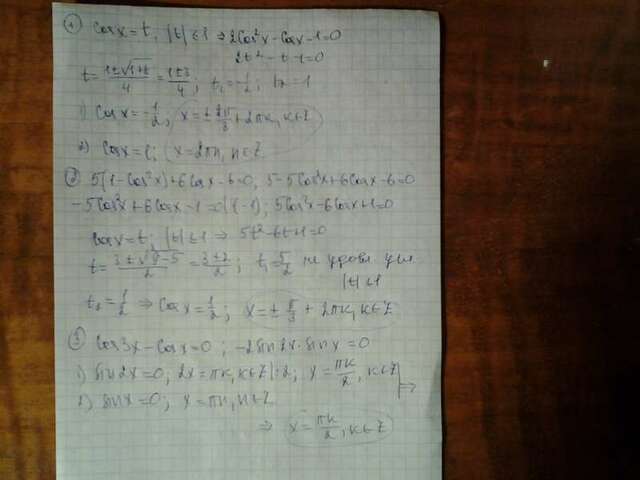 ① cos x = t, |t| ≤ 1 ⇒ 2cos²x - cos x - 1 = 0
2t² - t - 1 = 0
t = (1±√(1+8))/4 = (1±3)/4; t₁ = -1/2; t₂ = 1
1) cos x = -1/2; x = ± 2π/3 + 2πk, k∈Z
2) cos x = 1; x = 2πn, n∈Z
② 5(1-cos²x)+6cos x - 6 = 0; 5-5cos²x+6cos x - 6 = 0
-5cos²x + 6cos x - 1 = 0 |(-1); 5cos²x - 6cos x + 1 = 0
cos x = t; |t| ≤ 1 ⇒ 5t² - 6t + 1 = 0
t = (3±√(9-5))/2 = (3±2)/2; t₁ = 5/2 не удовл. усл.
|t| ≤ 1
t₂ = 1/2 ⇒ cos x = 1/2; x = ± π/3 + 2πk, k∈Z
③ cos 3x - cos x = 0; -2 sin 2x · sin x = 0
1) sin 2x = 0; 2x = πk, k∈Z |:2; x = πk/2, k∈Z
2) sin x = 0; x = πn, n∈Z
⇒ x = πk/2, k∈Z